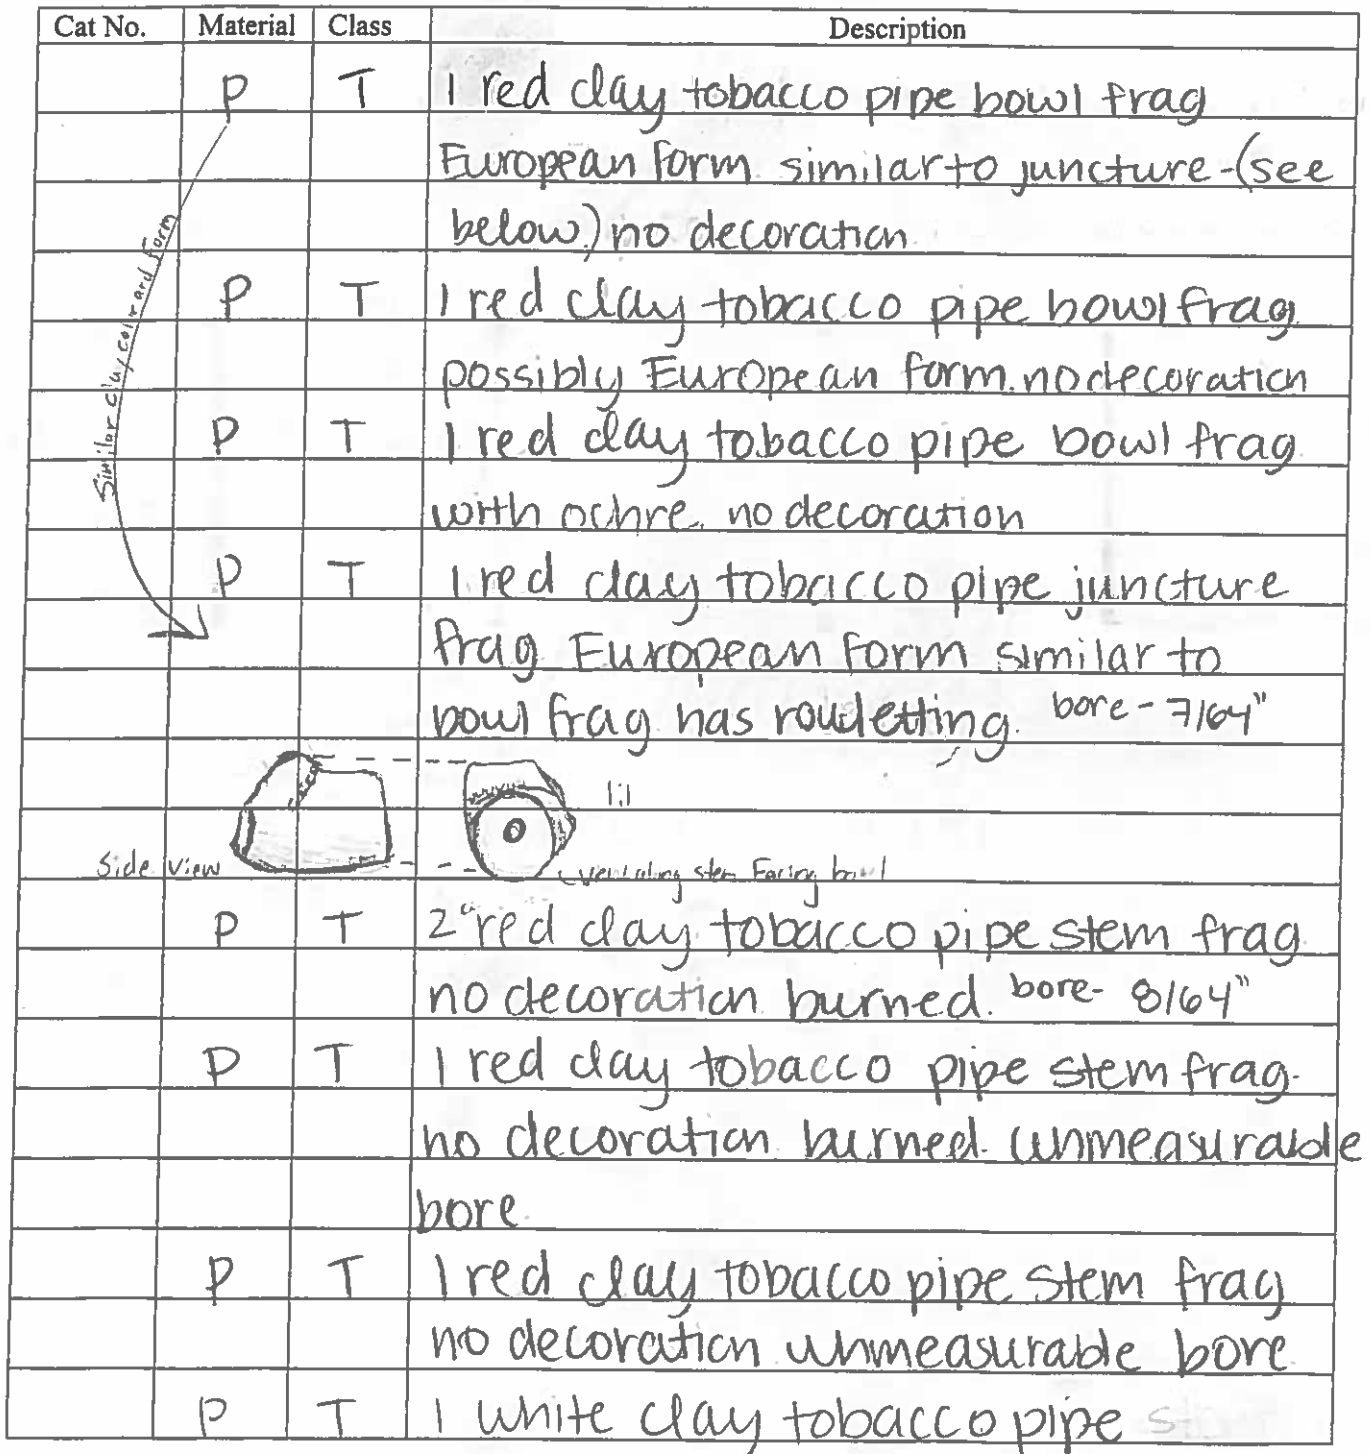 Cat No. Material Class Description
P T 1 red clay tobacco pipe bowl frag
European form similar to juncture-(see
below) no decoration
P T 1 red clay tobacco pipe bowl frag
possibly European form. no decoration
P T 1 red clay tobacco pipe bowl frag
with ochre. no decoration
P T 1 red clay tobacco pipe juncture
frag European form similar to
bowl frag has rouletting. bore - 7/64"
Similar clay color and form
1:1
Side View
stem Facing bowl
P T 2 red clay tobacco pipe stem frag
no decoration burned. bore- 8/64"
P T 1 red clay tobacco pipe stem frag.
no decoration burned. unmeasurable
bore
P T 1 red clay tobacco pipe stem frag
no decoration unmeasurable bore
P T 1 white clay tobacco pipe